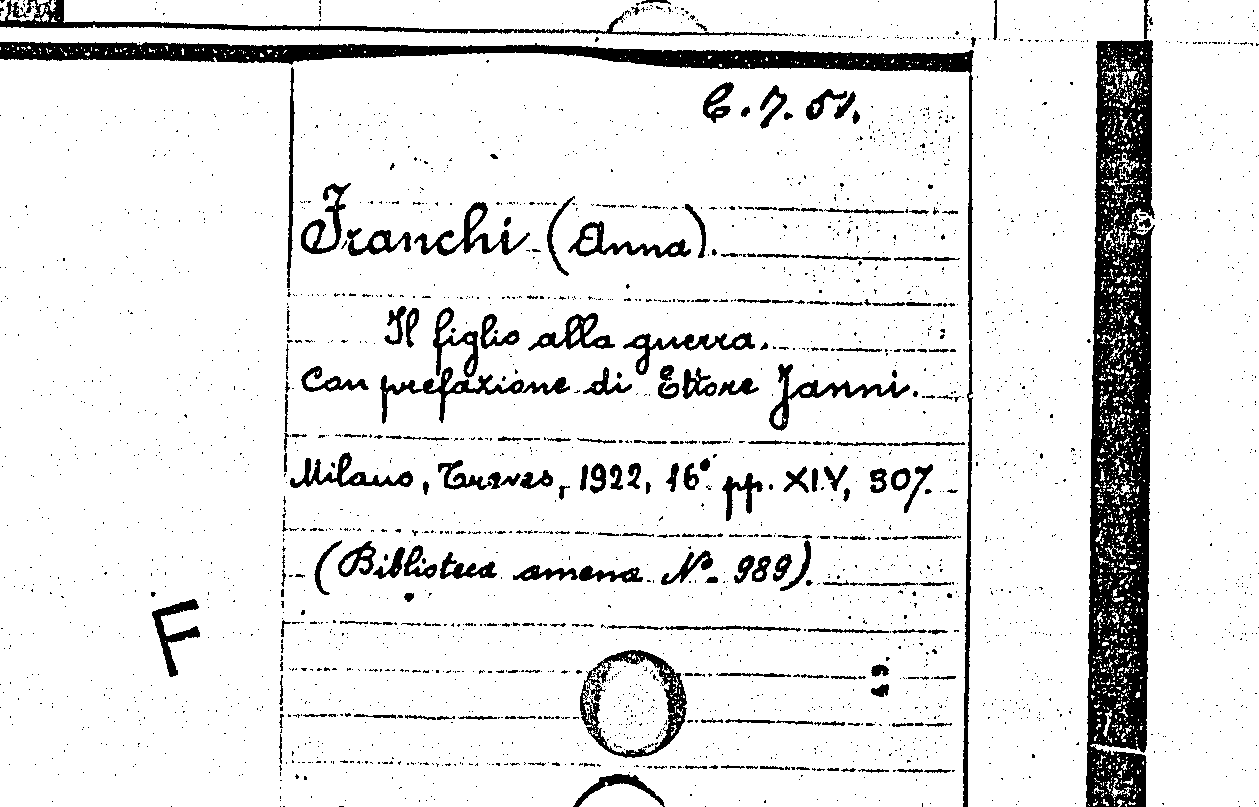 C.7.51.
Franchi (Anna).
Il figlio alla guerra.
Con prefazione di Ettore Janni.
Milano, Treves, 1922, 16° pp. XIV, 307.
(Biblioteca amena N°. 989).
F